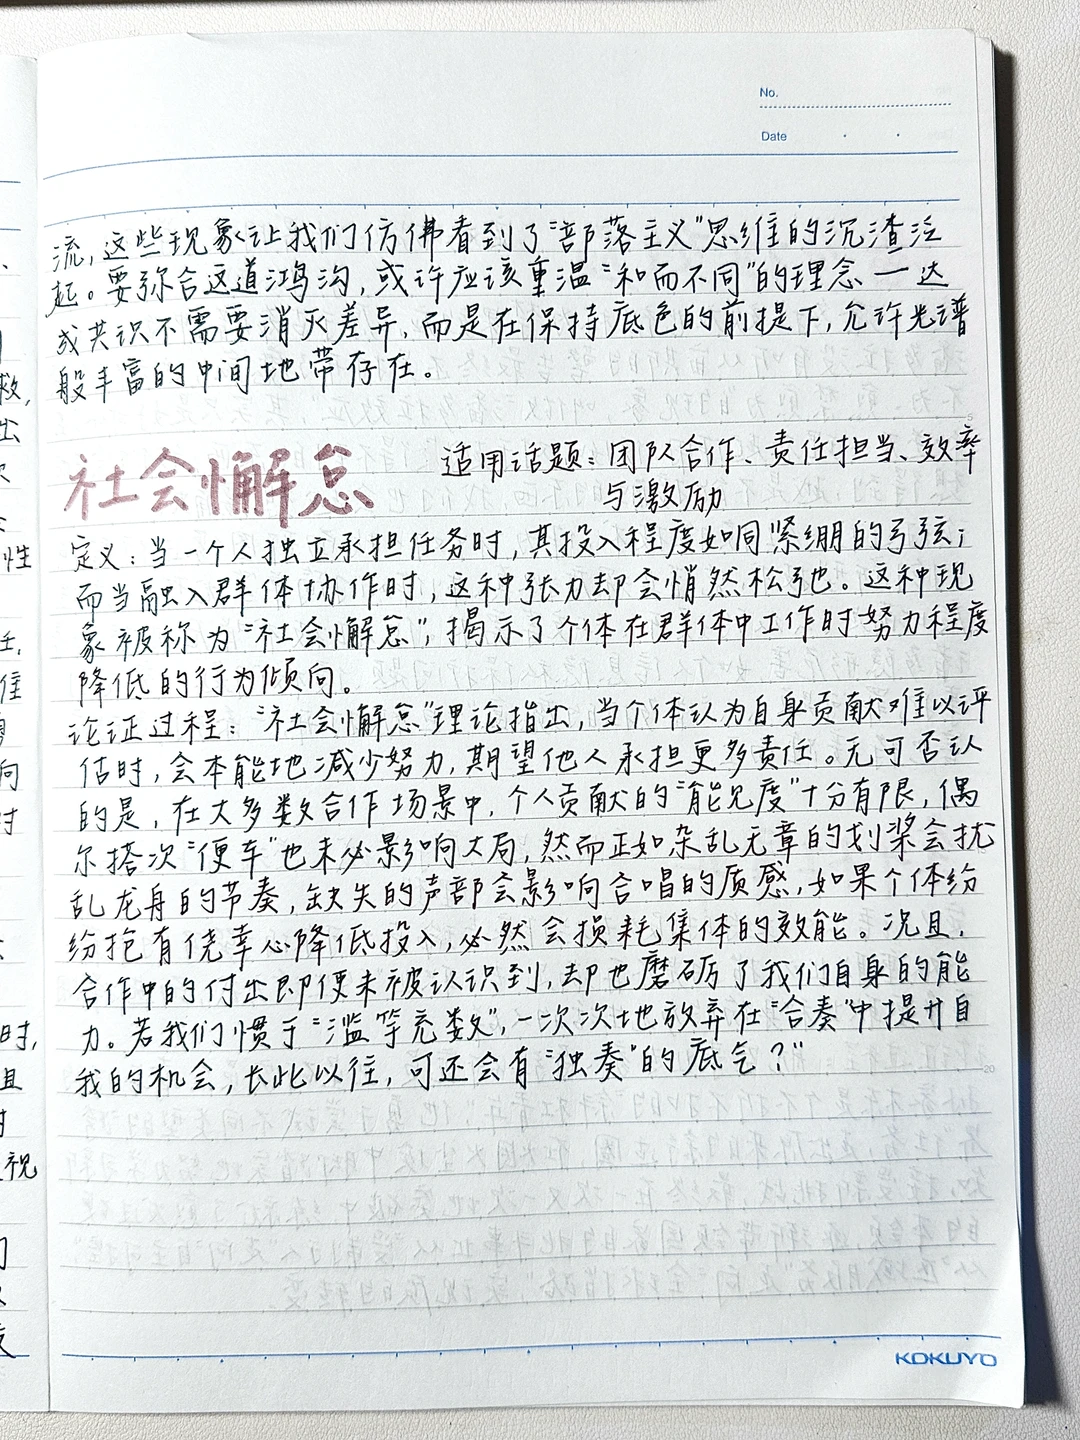 No.
Date
流,这些现象让我们仿佛看到了“部落主义”思维的沉渣泛
起。要弥合这道鸿沟,或许应该重温“和而不同”的理念——达
成共识不需要消灭差异,而是在保持底色的前提下,允许光谱
般丰富的中间地带存在。
社会懈怠
适用话题:团队合作、责任担当、效率
与激励
定义:当一个人独立承担任务时,其投入程度如同紧绷的弓弦;
而当融入群体协作时,这种张力却会悄然松弛。这种现
象被称为“社会懈怠”,揭示了个体在群体中工作时努力程度
降低的行为倾向。
论证过程:“社会懈怠”理论指出,当个体认为自身贡献难以评
估时,会本能地减少努力,期望他人承担更多责任。无可否认
的是,在大多数合作场景中,个人贡献的“能见度”十分有限,偶
尔搭次“便车”也未必影响大局,然而正如杂乱无章的划桨会扰
乱龙舟的节奏,缺失的声部会影响合唱的质感,如果个体纷
纷抱有侥幸心降低投入,必然会损耗集体的效能。况且,
合作中的付出即便未被认识到,却也磨砺了我们自身的能
力。若我们惯于“滥竽充数”,一次次地放弃在“合奏”中提升自
我的机会,长此以往,可还会有“独奏”的底气?”
20
KOKUYO